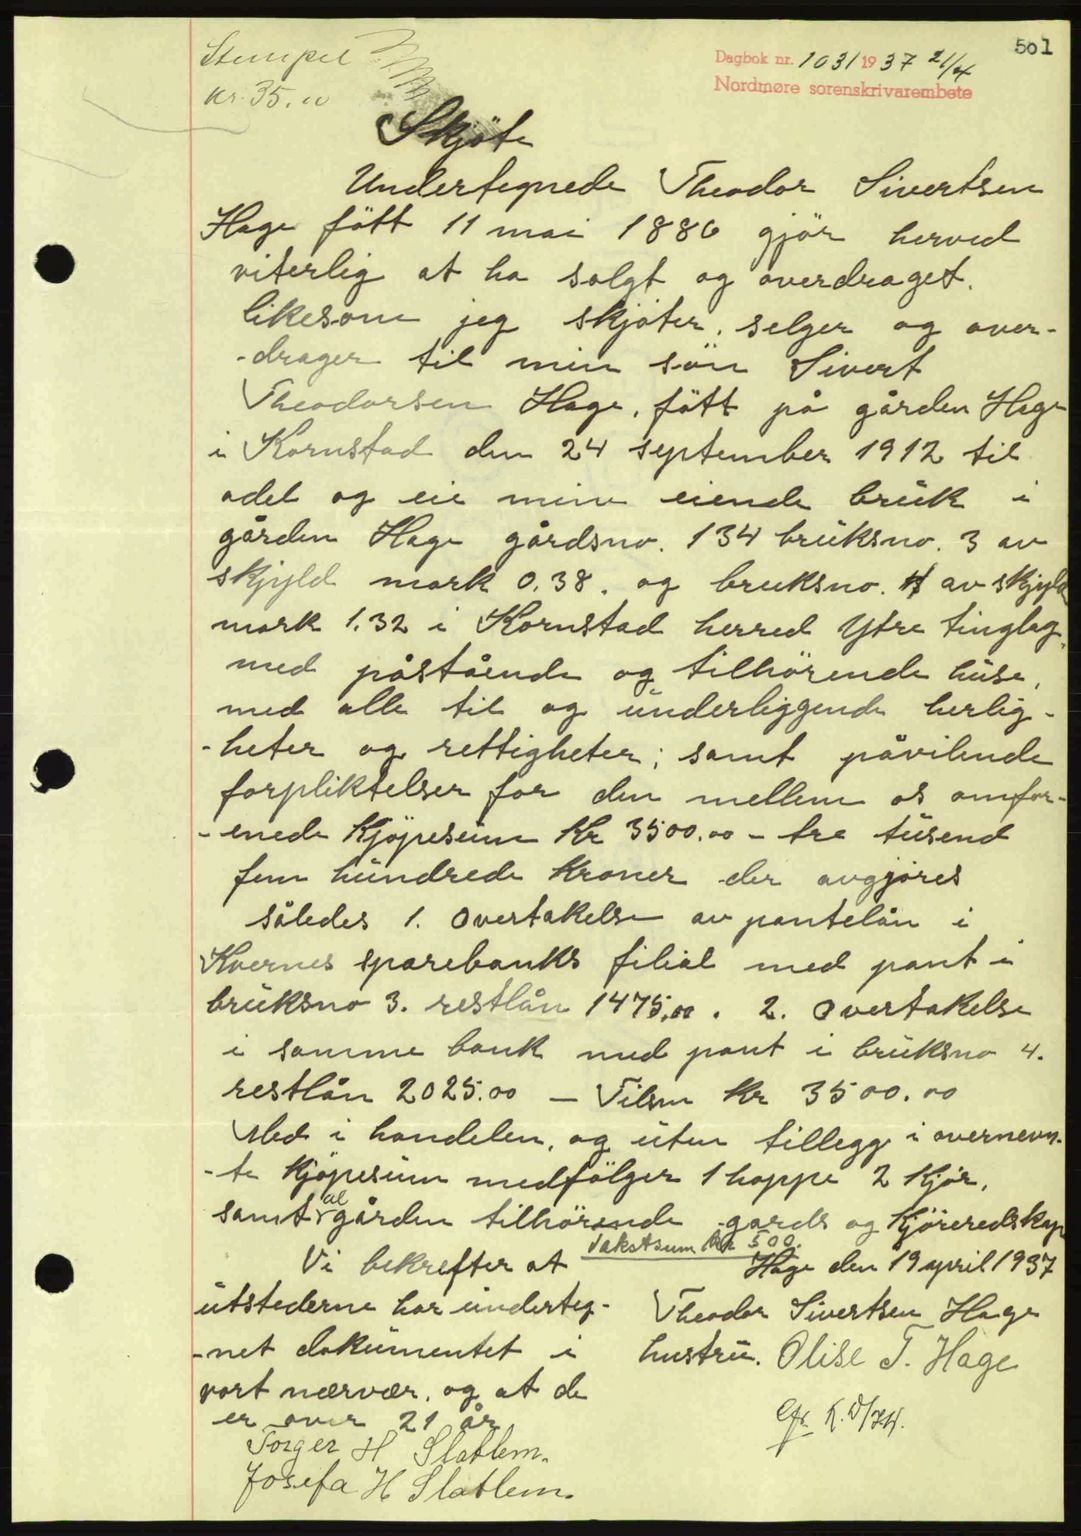 501
Stempel
kr. 35.00
Dagbok nr. 1031 1937 21/4
Nordmøre sorenskrivarembete
Skjöte
Undertegnede Theodor Sivertsen
Hage fött 11 mai 1886 gjör herved
viterlig at ha solgt og overdraget.
likesom jeg skjöter, selger og over-
-drager til min sön Sivert
Theodorsen Hage, fött på gården Hage
i Kornstad den 24 september 1912 til
odel og eie mine eiende bruk i
gården Hage gårdsno. 134 bruksno. 3 av
skjyld mark 0.38. og bruksno. 4 av skjyld
mark 1.32 i Kornstad herred Ytre tinglag,
med påstående og tilhörende huse,
med alle til og underliggende herlig-
-heter og rettigheter; samt påvilende
forpliktelser for den mellem os omfor-
-enede Kjöpesum Kr 3500.00 - tre tusend
fem hundrede Kroner der avgjöres
således 1. Overtakelse av pantelån i
Kvernes sparebanks filial med pant i
bruksno 3. restlån 1475,00. 2. Overtakelse
i samme bank med pant i bruksno 4.
restlån 2025.00 — Tilsm Kr 3500.00
Med i handelen, og uten tillegg i overnevn-
-te Kjöpesum medfölger 1 hoppe 2 Kjör,
samt al gården tilhörende gards og Kjöreredskap
Takstsum kr 500.
Vi bekrefter at
utstederne har underteg-
-net dokumentet i
vort nærvær, og at de
er over 21 år
Torger H Slatlem.
Josefa H Slatlem.
Hage den 19 april 1937
Theodor Sivertsen Hage
hustru. Olise T. Hage